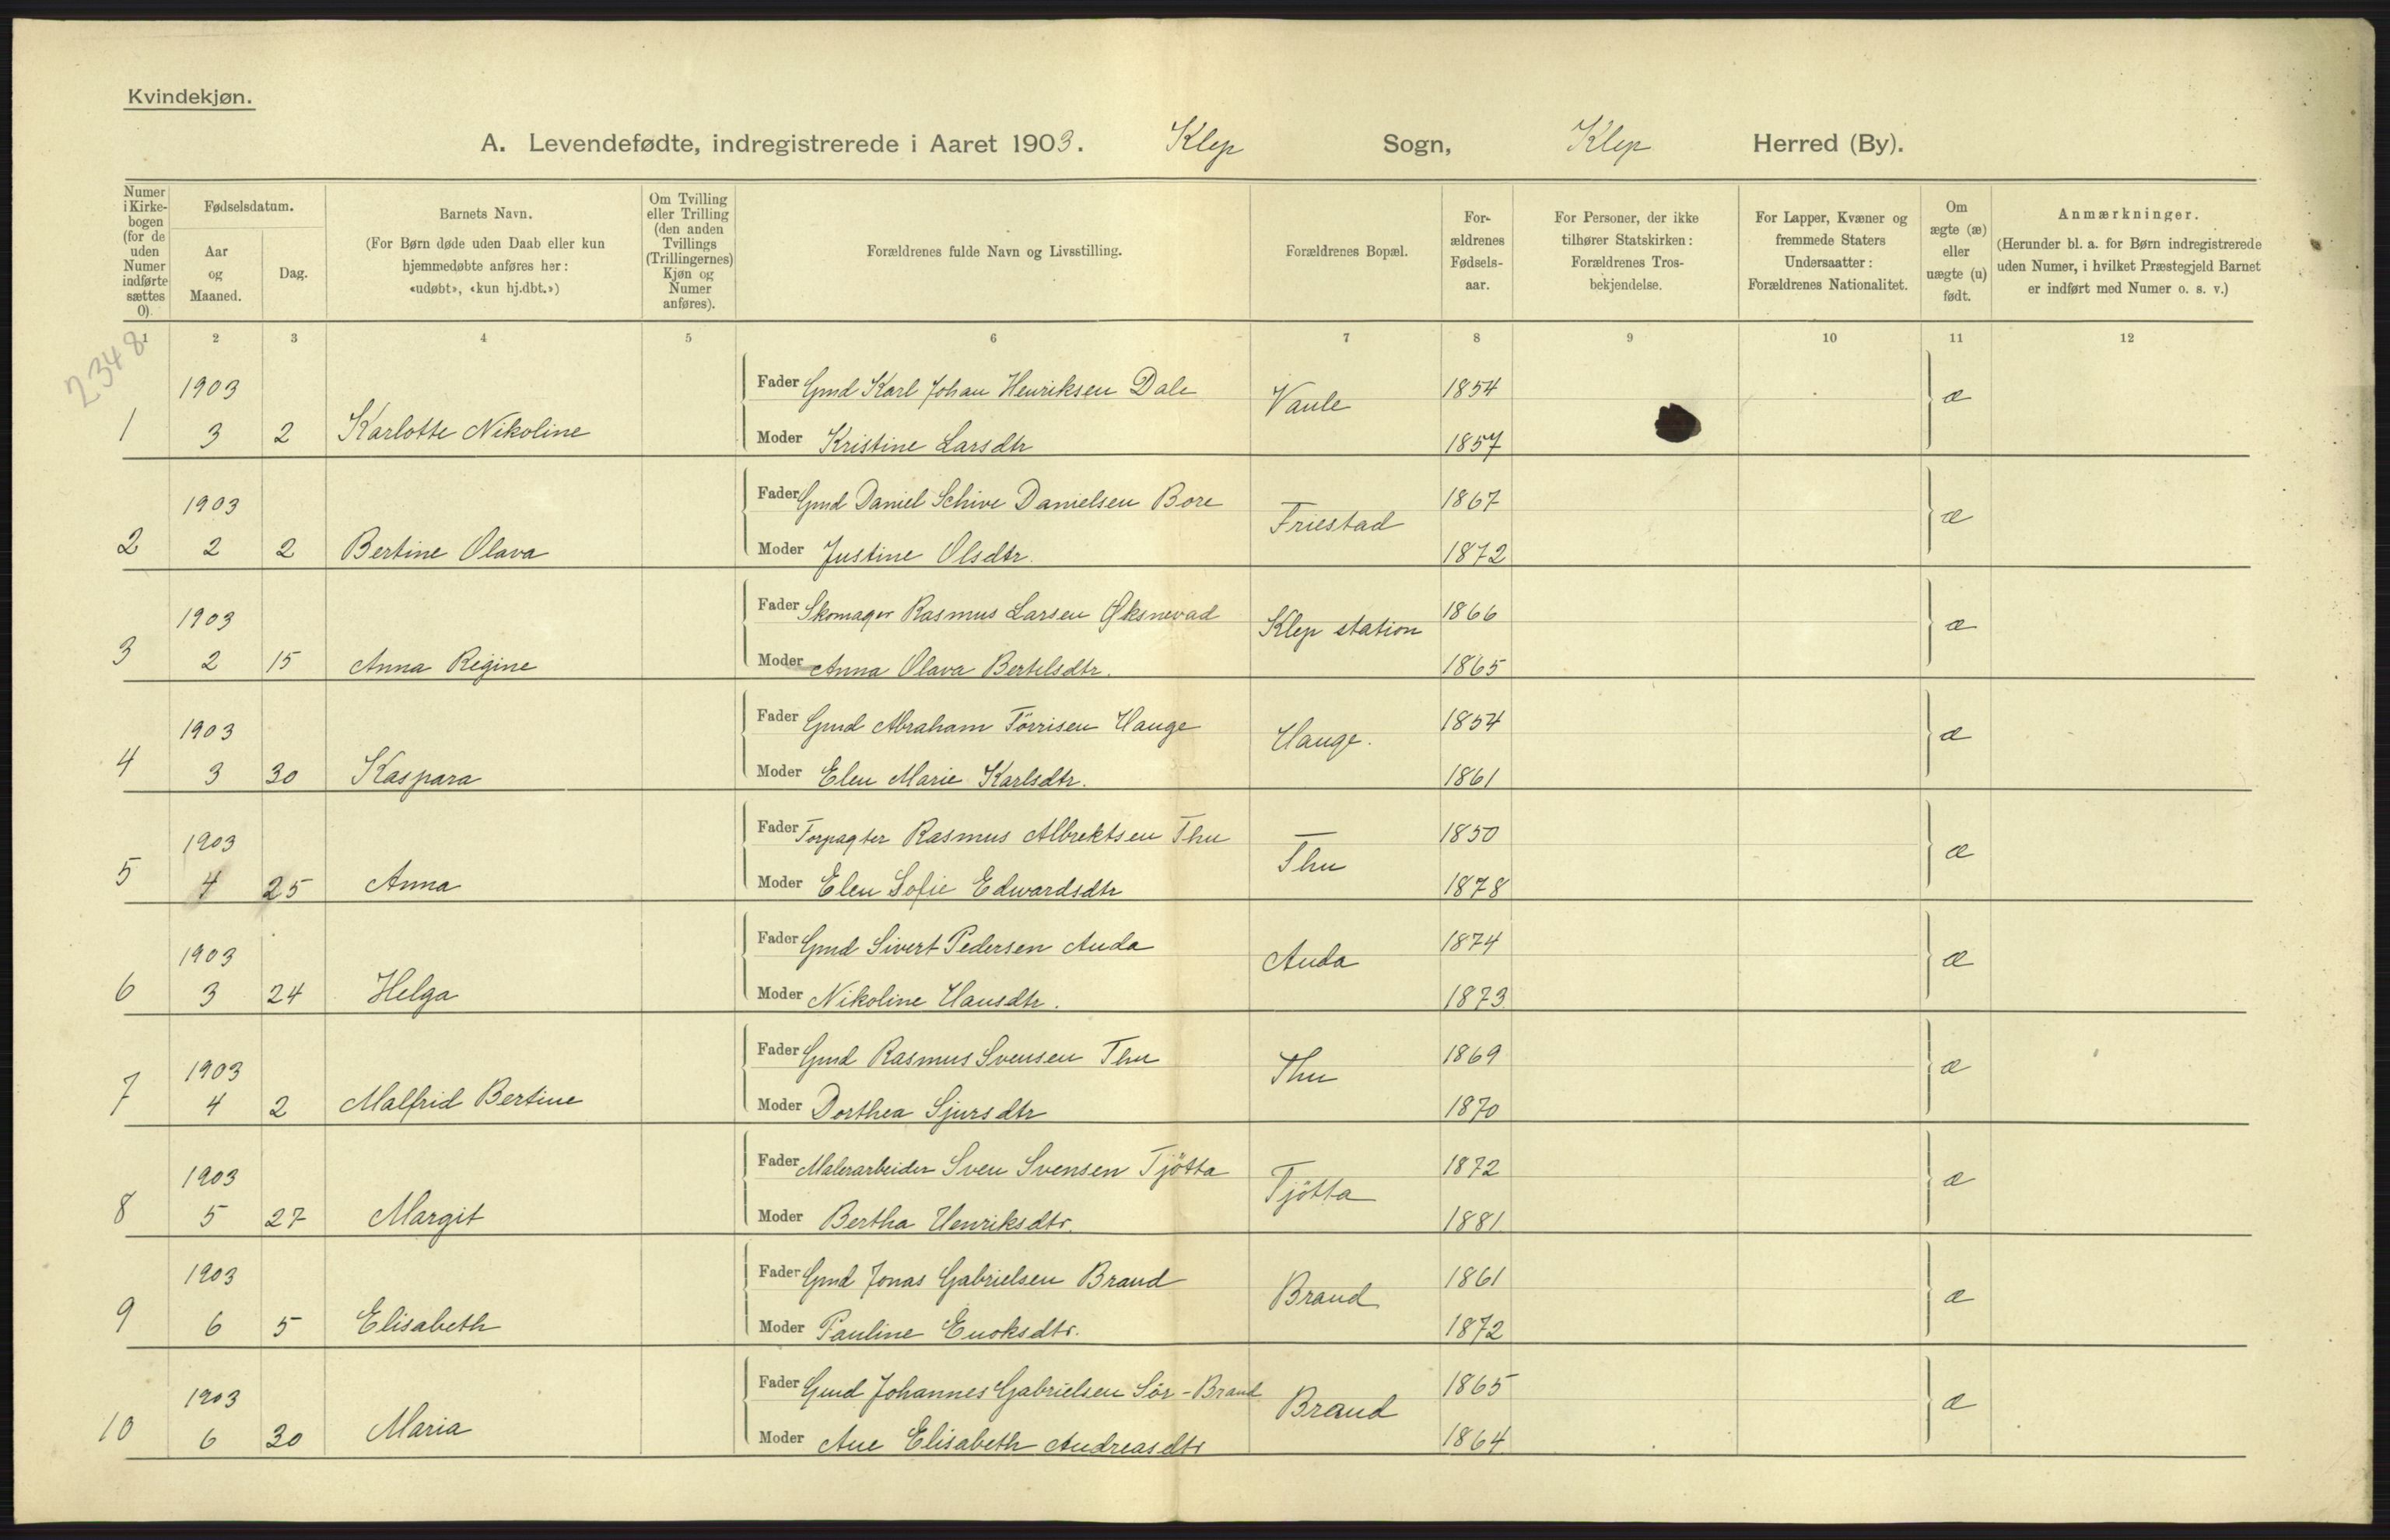 Kvindekjøn.
A. Levendefødte, indregistrerede i Aaret 1903. Klep Sogn, Klep Herred (By).
Numer i Kirkebogen (for de uden Numer indførte sættes 0).
Fødselsdatum.
Aar og Maaned.
Dag.
Barnets Navn.
(For Børn døde uden Daab eller kun hjemmedøbte anføres her: «udøbt», «kun hj.dbt.»)
Om Tvilling eller Trilling (den anden Tvillings (Trillingernes) Kjøn og Numer anføres).
Forældrenes fulde Navn og Livsstilling.
Forældrenes Bopæl.
Forældrenes Fødselsaar.
For Personer, der ikke tilhører Statskirken: Forældrenes Trosbekjendelse.
For Lapper, Kvæner og fremmede Staters Undersaatter: Forældrenes Nationalitet.
Om ægte (æ) eller uægte (u) født.
Anmærkninger.
(Herunder bl. a. for Børn indregistrerede uden Numer, i hvilket Præstegjeld Barnet er indført med Numer o. s. v.)
1 2 3 4 5 6 7 8 9 10 11 12
2348
1903 Fader Gmd Karl Johan Henriksen Dale Vaule 1854 æ
1 3 2 Karlotte Nikoline Moder Kristine Larsdtr 1857
1903 Fader Gmd Daniel Schive Danielsen Bore Friestad 1867 æ
2 2 2 Bertine Olava Moder Justine Olsdtr. 1872
1903 Fader Skomager Rasmus Larsen Øksnevad Klep station 1866 æ
3 2 15 Anna Regine Moder Anna Olava Bertelsdtr. 1865
1903 Fader Gmd Abraham Törrisen Hauge Hauge. 1854 æ
4 3 30 Kaspara Moder Elen Marie Karlsdtr. 1861
1903 Fader Forpagter Rasmus Albrektsen Thu Thu 1850 æ
5 4 25 Anna Moder Elen Sofie Edwardsdtr 1878
1903 Fader Gmd Sivert Pedersen Anda Anda 1874 æ
6 3 24 Helga Moder Nikoline Hansdtr. 1873
1903 Fader Gmd Rasmus Svensen Thu Thu 1869 æ
7 4 2 Malfrid Bertine Moder Dorthea Sjursdtr 1870
1903 Fader Malerarbeider Sven Svensen Tjötta Tjötta 1872 æ
8 5 27 Margit Moder Bertha Henriksdtr. 1881
1903 Fader Gmd Jonas Gabrielsen Braud Braud 1861 æ
9 6 5 Elisabeth Moder Pauline Enoksdtr. 1872
1903 Fader Gmd Johannes Gabrielsen Sör-Braud Braud 1865 æ
10 6 30 Maria Moder Ane Elisabeth Andreasdtr 1864